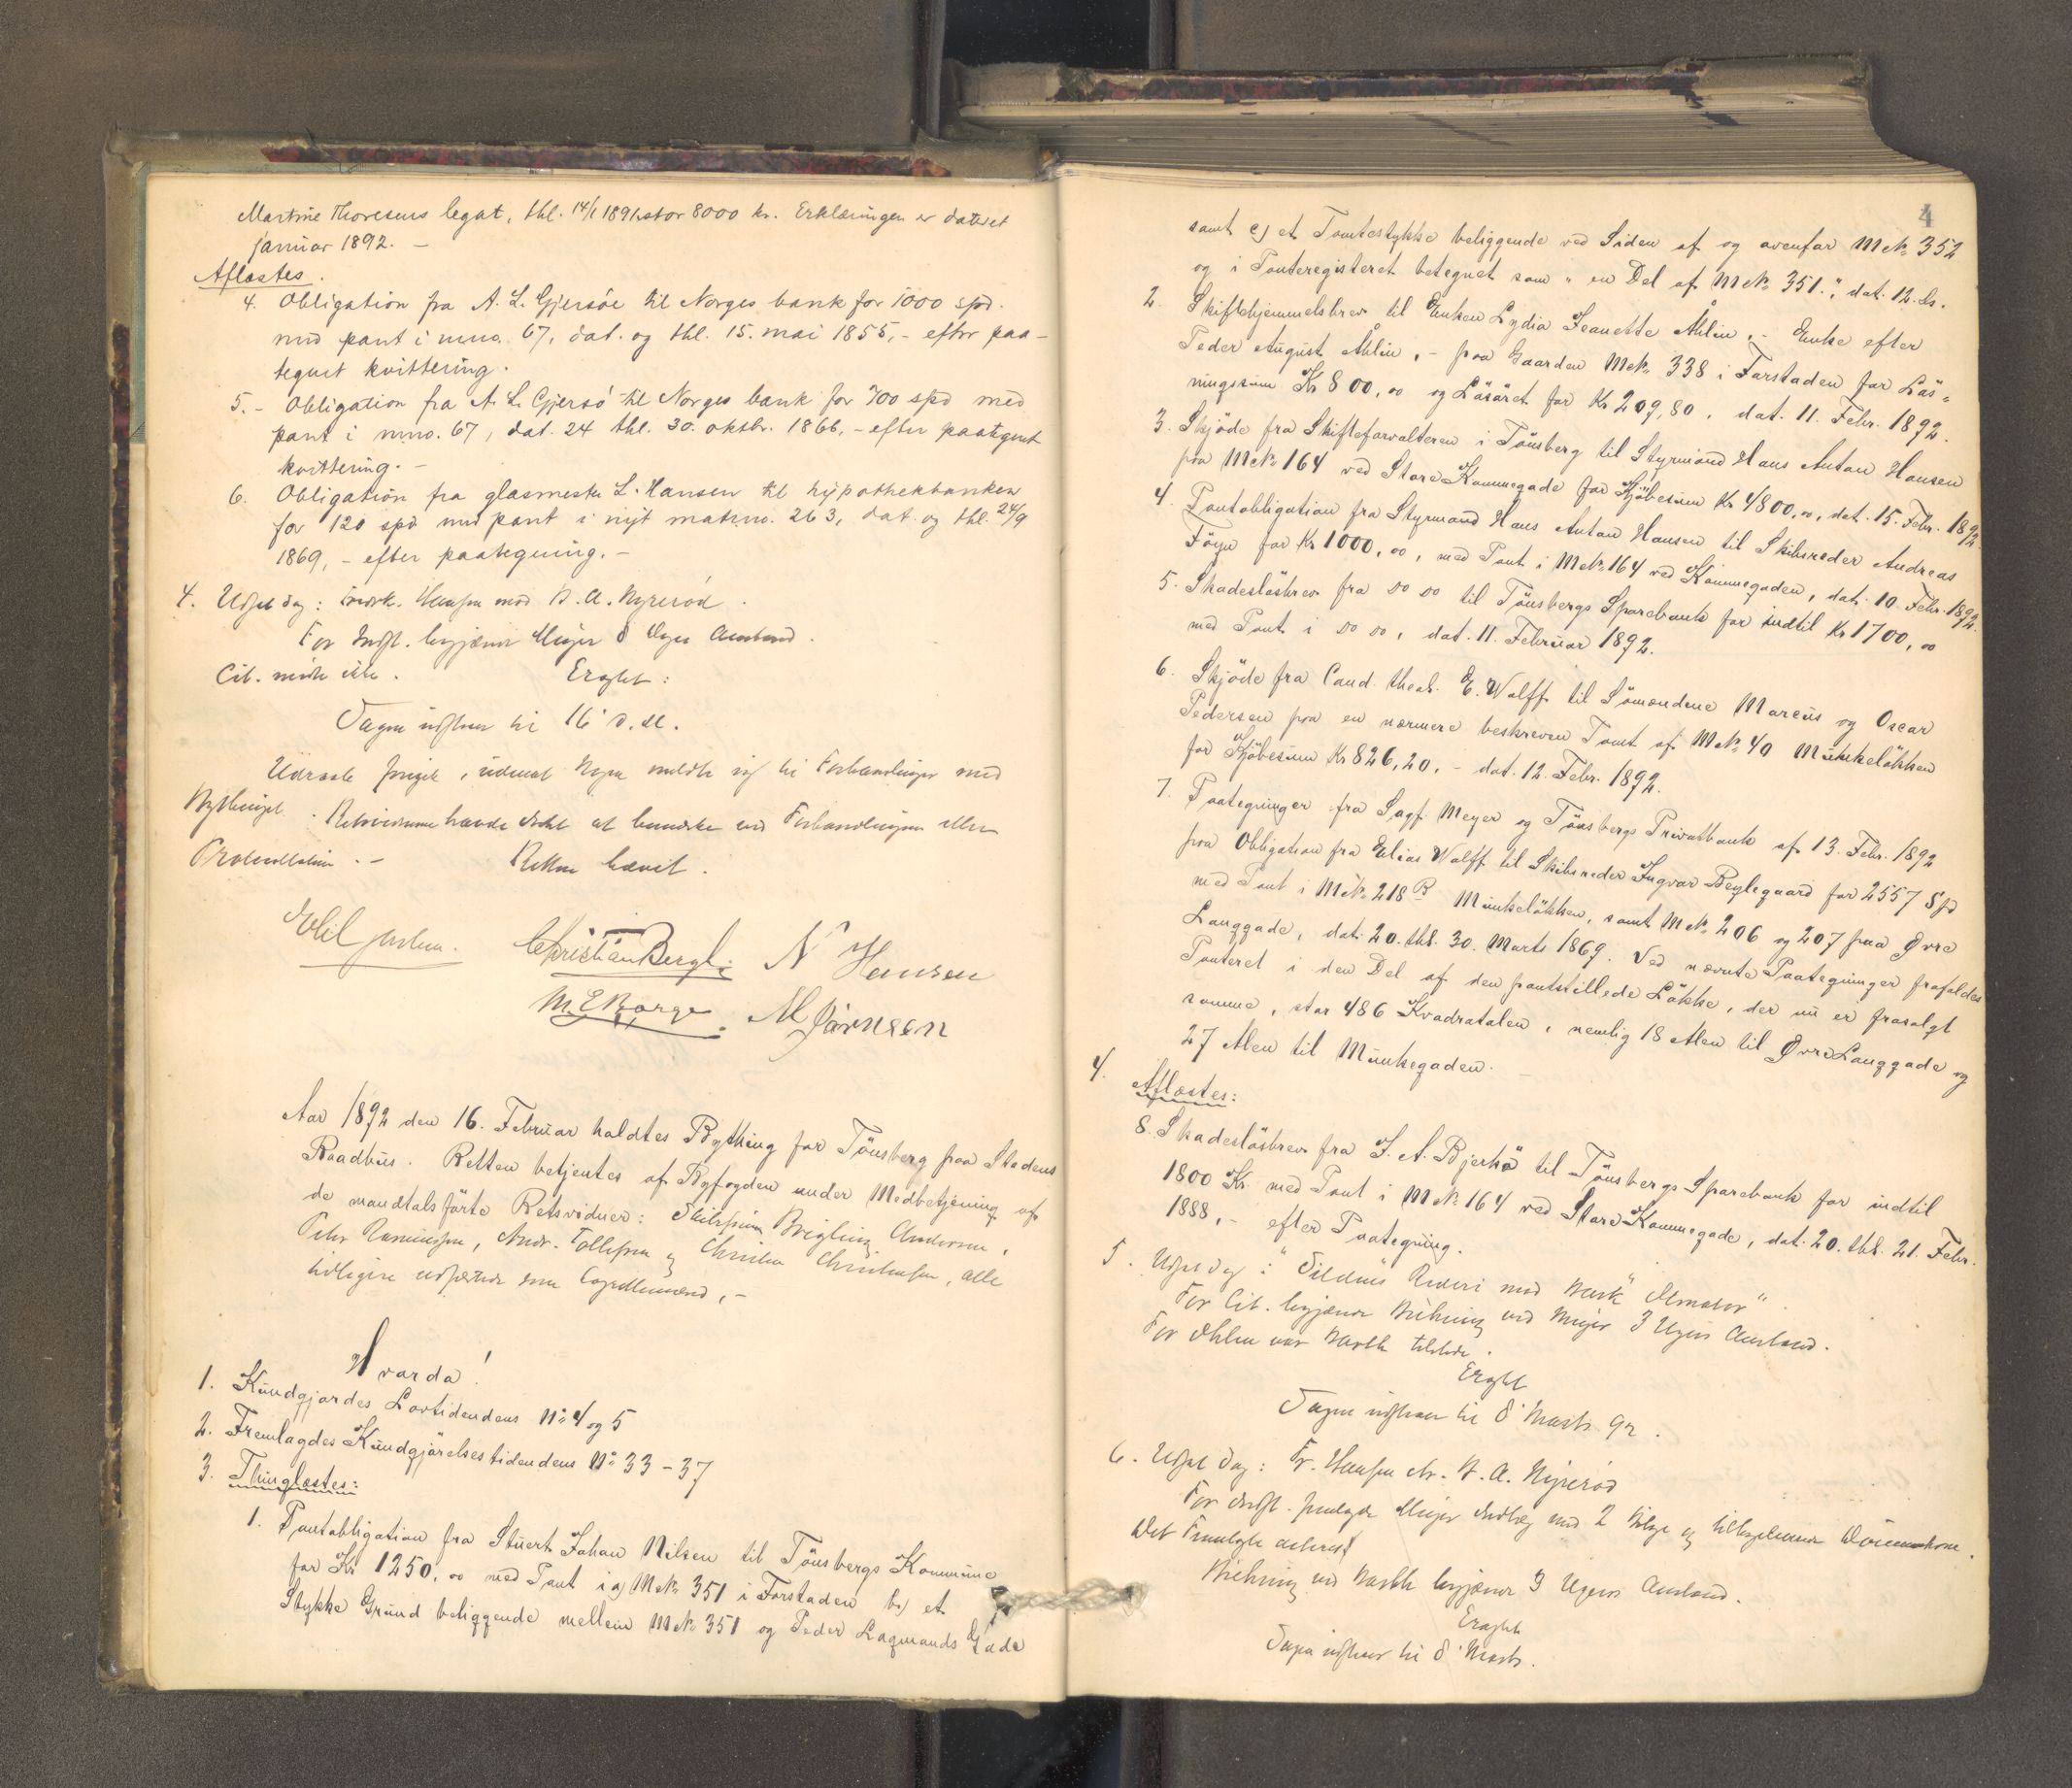 Martine Thoresens legat, thl. 14/1 1891, stor 8000 kr. Erklæringen er dateret
januar 1892. -
Aflæstes.
4. Obligation fra A. L. Gjersøe til Norges bank for 1000 spd.
med pant i mno. 67, dat. og thl. 15. mai 1855, - efter paa-
tegnet kvittering.
5. - Obligation fra A. L. Gjersö til Norges bank for 700 spd med
pant i mno. 67, dat. 24 thl. 30. oktbr. 1866, - efter paategnet
kvittering. -
6. Obligation fra glasmester L. Hansen til hypothekbanken
for 120 spd med pant i nyt matrno. 263, dat. og thl. 24/9
1869, - efter paategning. -
4. Udsat Sag: Hansen mod A. Nyrerød.
For begjærer Meyer 8 Dages Udstand.
Cit. mødte ikke. Eragtet:
Sagen udstaar til 16 d. M.
Udraab foregik, uden at Nogen meldte sig til Forhandlinger med
Bythinget. Retsvidnerne havde Intet at bemærke ved Forhandlingen eller
Protocollationen. - Retten hævet.
Christian Bergh. N Hansen
M. E. Borge. M Jörnsen
Aar 1892 den 16. Februar holdtes Bything for Tönsberg paa Stadens
Raadhus. Retten betjentes af Byfogden under Medbetjening af
de mandtalsförte Retsvidner: Andersen,
Peter Rasmussen, Andr. Tollefsen og Christen Christensen, alle
tidligere edfæstede som Lagrettemænd, -
Hvorda!
1. Kundgjordes Lovtidendens No 4 og 5
2. Fremlagdes Kundgjörelsestidendens No 33 - 37
3. Thinglæstes:
1. Pantobligation fra Stuert Johan Nilsen til Tönsbergs Kommune
for Kr 1250,00 med Pant i a) M.No 351 i Forstaden b) et
Stykke Grund beliggende mellem M.No 351 og Peder Lagmands Gade
4
samt c) et Tomtestykke beliggende ved Siden af og ovenfor M.No 352
og i Panteregisteret betegnet som "en Del af M.No 351.", dat. 12. ds.
2. Skiftehjemmelsbrev til Enken Lydia Jeanette Åhlin, - Enke efter
Peder August Åhlin, - paa Gaarden M.No 338 i Forstaden for Lös-
ningssum Kr 800,00 og Lösöret for Kr 209,80. dat. 11. Febr. 1892.
3. Skjöde fra Skifteforvalteren i Tönsberg til Styrmand Hans Anton Hansen
paa M.No 164 ved Store Kammegade for Kjöbesum Kr 4800,00, dat. 15. Febr. 1892.
4. Pantobligation fra Styrmand Hans Anton Hansen til Skibsreder Andreas
Föyn for Kr 1000,00, med Pant i M.No 164 ved Kammegaden, dat. 10. Febr. 1892.
5. Skadeslösbrev fra do do til Tönsbergs Sparebank for indtil Kr 1700,00
med Pant i do do, dat. 11. Februar 1892.
6. Skjöde fra Cand. theol. E. Wolff til Sömændene Marcus og Oscar
Pedersen paa en nærmere beskreven Tomt af M.No 40 Munkelökken
for Kjöbesum Kr 826,20. - dat. 12. Febr. 1892.
7. Paategninger fra Sagf. Meyer og Tönsbergs Privatbank af 13. Febr. 1892
paa Obligation fra Elias Wolff til Skibsreder Ingvar Bryllegaard for 2557 Spd
med Pant i M.No 218 B Munkelökken, samt M.No 206 og 207 paa Øvre
Langgade, dat. 20. thl. 30. Marts 1869. Ved nævnte Paategninger frafaldes
Panteret i den Del af den pantstillede Lökke, der nu er frasolgt
samme, stor 486 Kvadratalen, nemlig 18 Alen til Øvre Langgade og
27 Alen til Munkegaden.
4. Aflæstes:
8. Skadeslösbrev fra J. A. Bjerkö til Tönsbergs Sparebank for indtil
1800 Kr. med Pant i M.No 164 ved Store Kammegade, dat. 20. thl. 21. Febr.
1888, - efter Paategning.
5. Udsat Sag: Rederi mod Bark
For Cit. begjærer ved Meyer 3 Ugers Udstand.
For var tilstede.
Eragtet
Sagen udstaar til 8 Marts 92.
6. Udsat Sag: Fr. Hansen A. Nyrerød
For fremlagde Meyer Indlæg med 2 Bilage og
Det Fremlagte
ved begjærer 3 Ugers Udstand.
Eragtet
Sagen udstaar til 8 Marts.